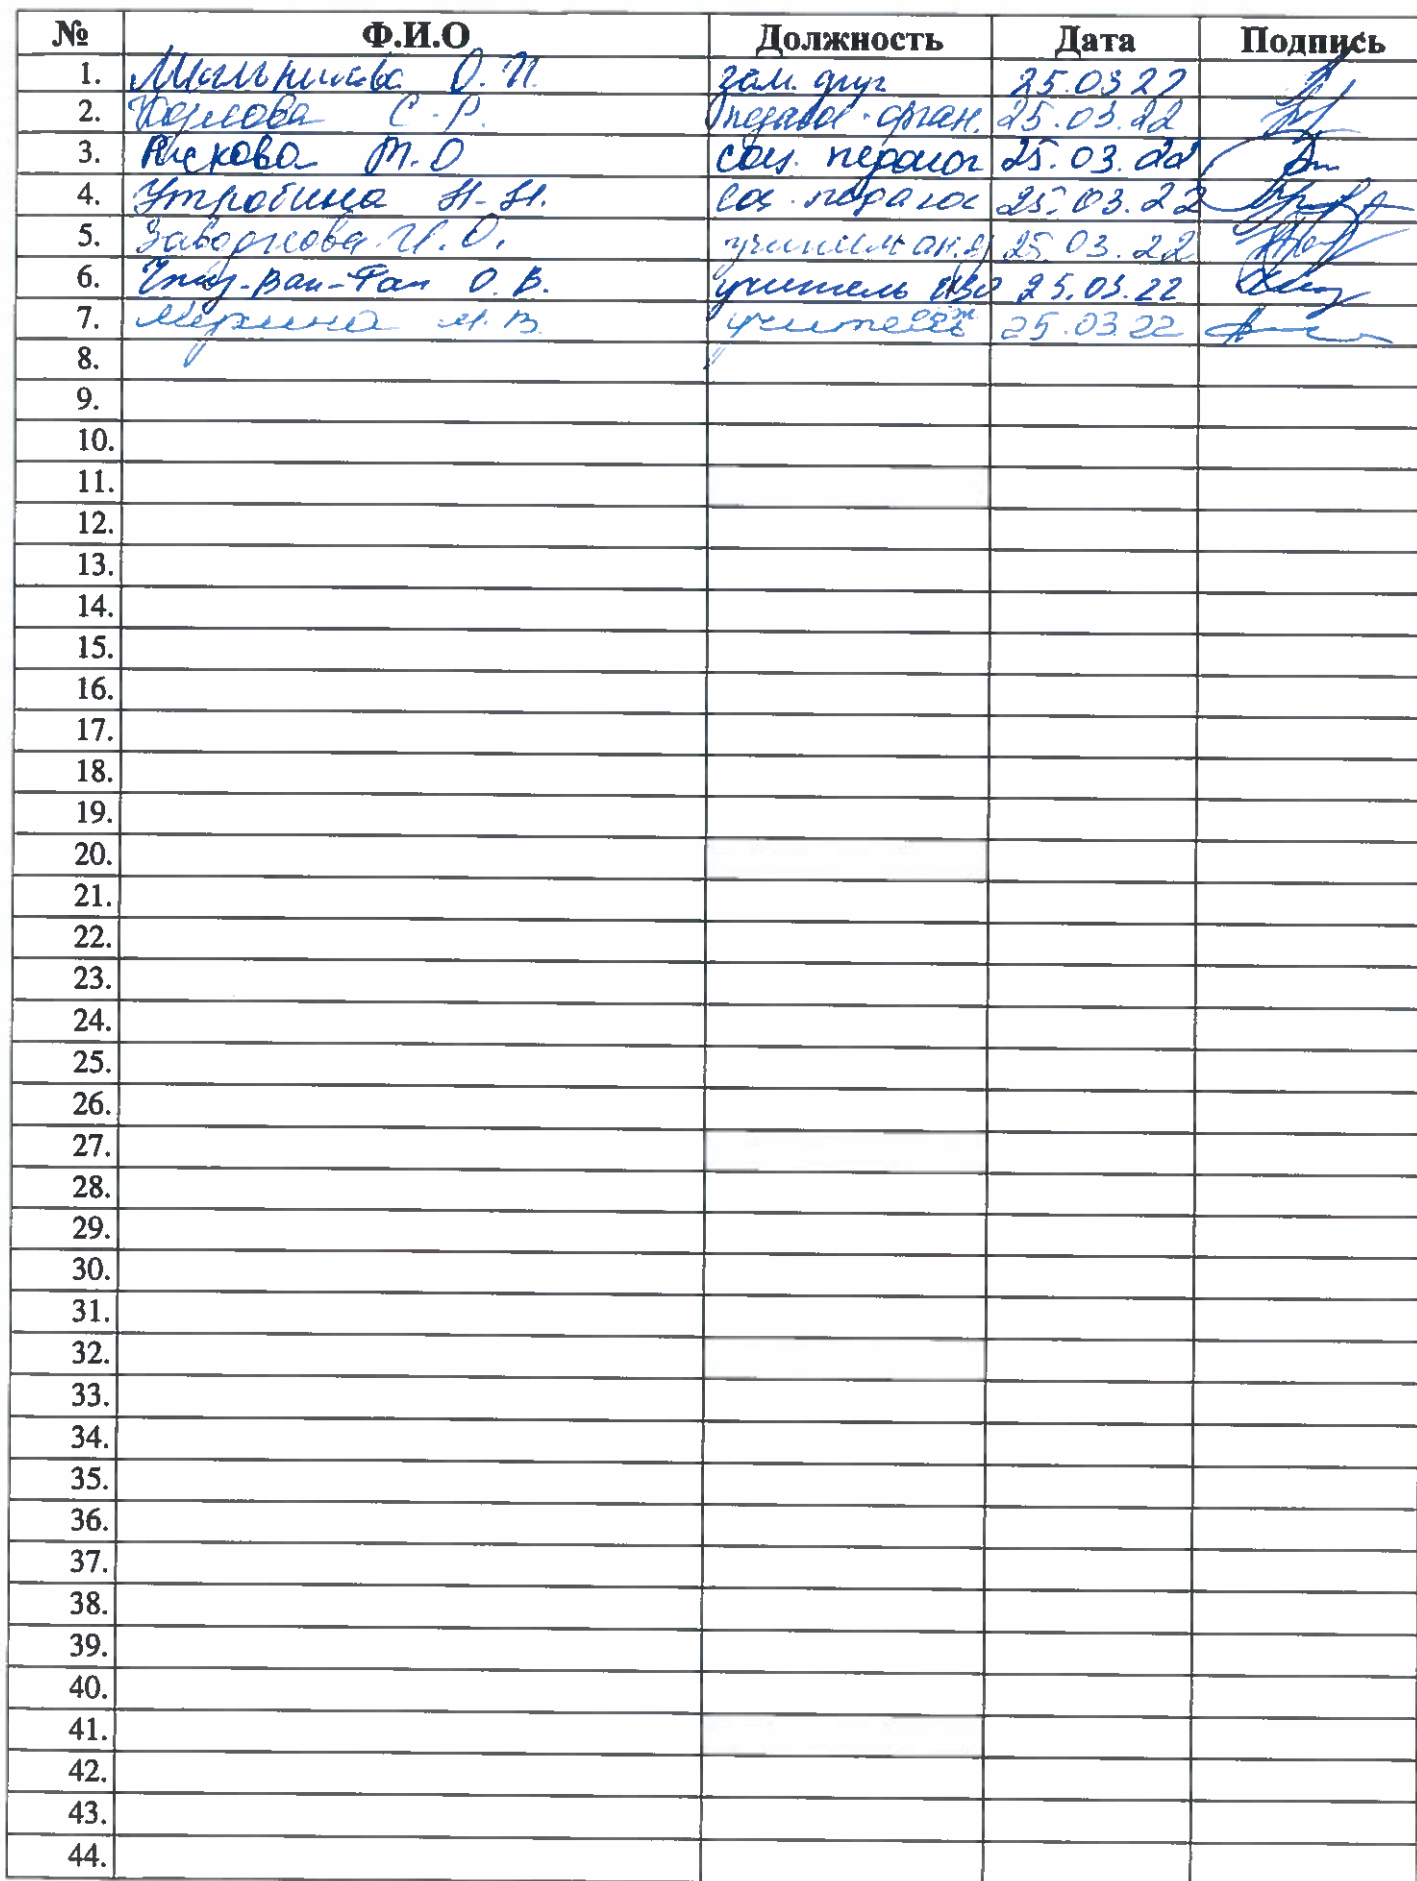 № Ф.И.О Должность Дата Подпись
1. О. П. зам. дир 25.03 22
2. С. Р. педагог-орган. 25.03.22
3. Рискова М.О соц. педагог 25.03.22
4. Утробина Н.Н. соц. педагог 25.03.22
5. Заворохова И.О. учитель ан.я 25.03.22
6. О.В. учитель ИЗО 25.03.22
7. учитель 25.03.22
8.
9.
10.
11.
12.
13.
14.
15.
16.
17.
18.
19.
20.
21.
22.
23.
24.
25.
26.
27.
28.
29.
30.
31.
32.
33.
34.
35.
36.
37.
38.
39.
40.
41.
42.
43.
44.